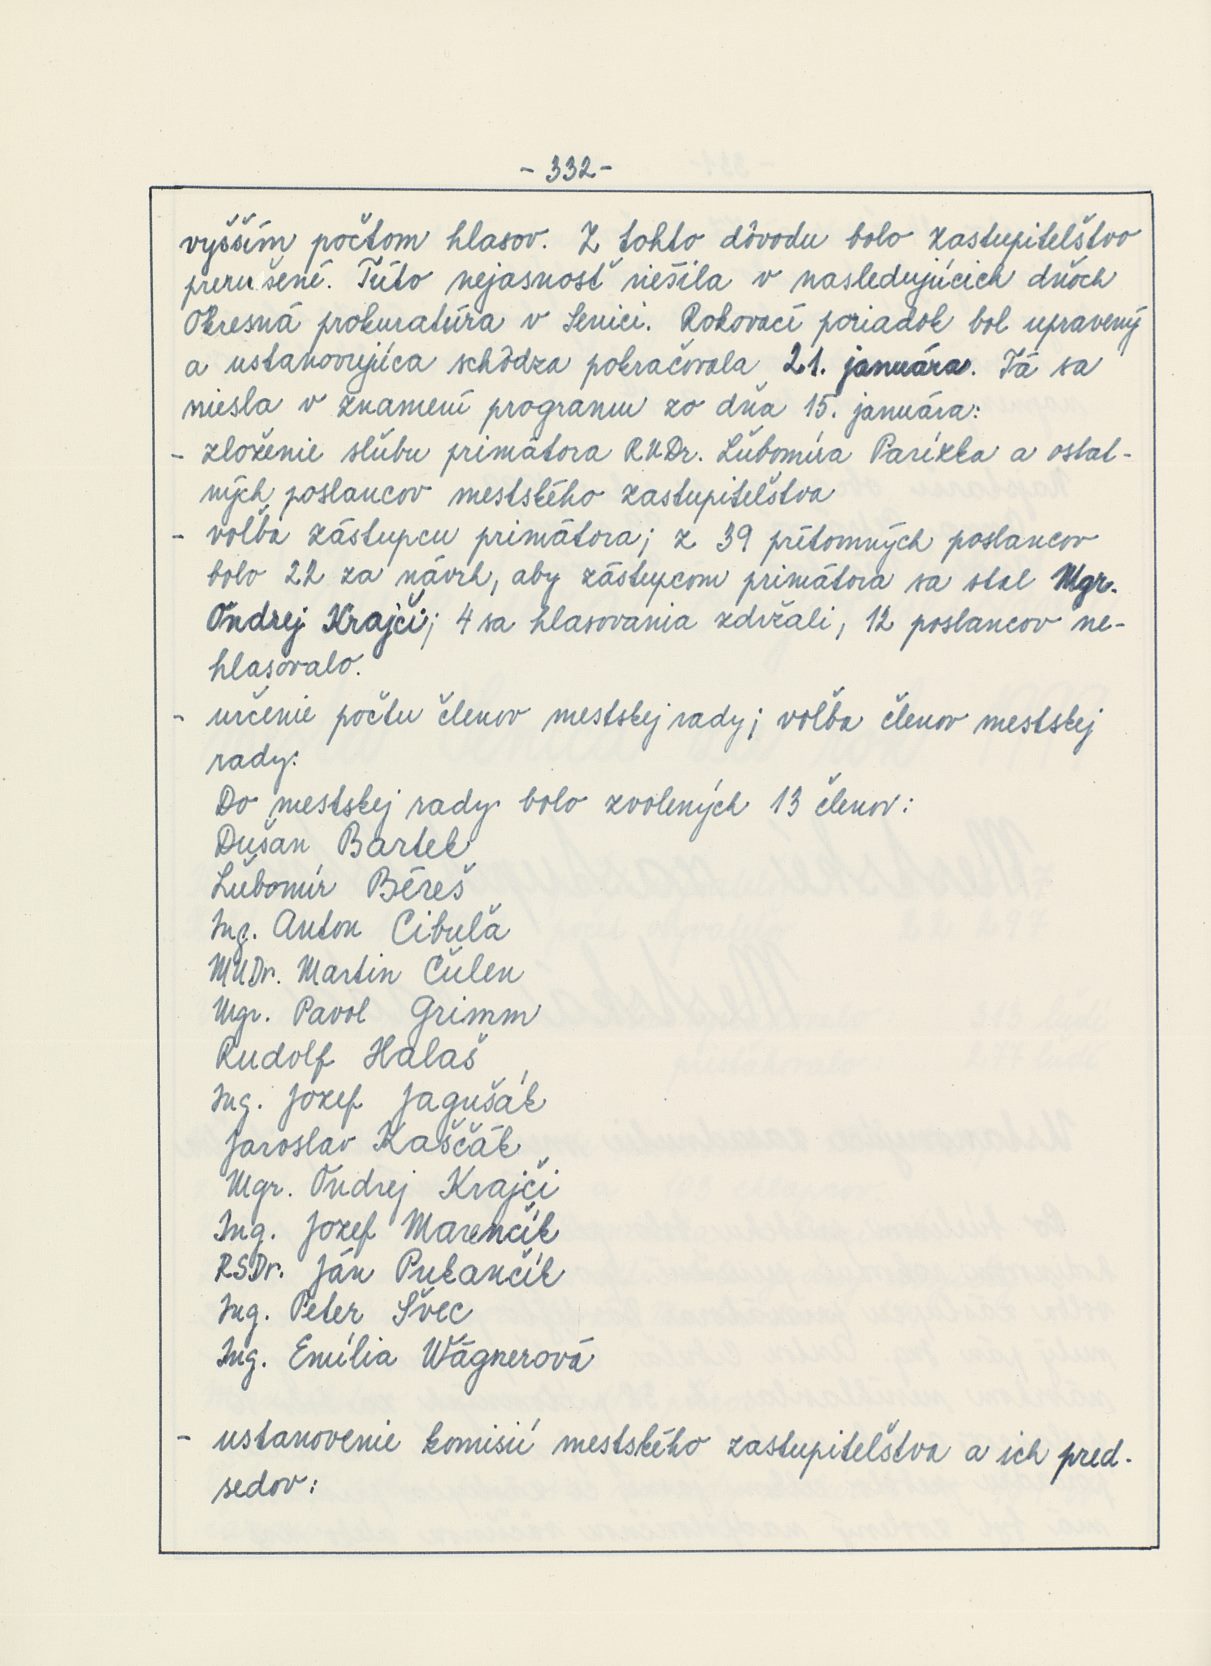 - 332 -
vyšším počtom hlasov. Z tohto dôvodu bolo zastupiteľstvo
prerušené. Túto nejasnosť riešila v nasledujúcich dňoch
Okresná prokuratúra v Senici. Rokovací poriadok bol upravený
a ustanovujúca schôdza pokračovala 21. januára. Tá sa
niesla v znamení programu zo dňa 15. januára:
- zloženie sľubu primátora RVDr. Ľubomíra Parízka a ostat-
ných poslancov mestského zastupiteľstva
- voľba zástupcu primátora; z 39 prítomných poslancov
bolo 22 za návrh, aby zástupcom primátora sa stal Mgr.
Ondrej Krajči; 4 sa hlasovania zdržali, 12 poslancov ne-
hlasovalo.
- určenie počtu členov mestskej rady; voľba členov mestskej
rady:
Do mestskej rady bolo zvolených 13 členov:
Dušan Bartek
Ľubomír Béreš
Ing. Anton Cibuľa
MUDr. Martin Čulen
Mgr. Pavol Grimm
Rudolf Halaš
Ing. Jozef Jagušák
Jaroslav Kaščák
Mgr. Ondrej Krajči
Ing. Jozef Marenčík
RSDr. Ján Pukančík
Ing. Peter Švec
Ing. Emília Wágnerová
- ustanovenie komisií mestského zastupiteľstva a ich pred-
sedov: